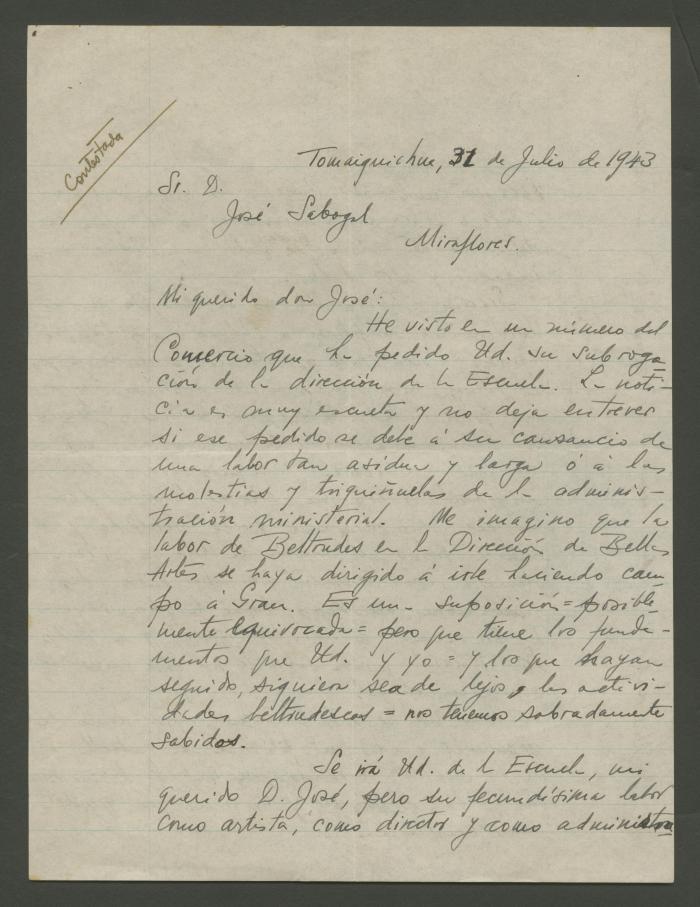 Contestada
Tomaiquichua, 31 de Julio de 1943
Sr. D.
José Sabogal
Miraflores.
Mi querido don José:
He visto en un número del
Comercio que ha pedido Ud. su subroga-
ción de la dirección de la Escuela. La noti-
cia es muy escueta y no deja entrever
si ese pedido se debe á su cansancio de
una labor tan asidua y larga ó á las
molestias y triquiñuelas de la adminis-
tración ministerial. Me imagino que la
labor de Beltrondes en la Dirección de Bellas
Artes se haya dirigido á irle haciendo cam-
po á Grau. Es una suposición = posible-
mente equivocada = pero que tiene los funda-
mentos que Ud. y yo = y los que hayan
seguido, siquiera sea de lejos, las activi-
dades beltrondescas = nos tenemos sobradamente
sabidos.
Se irá Ud. de la Escuela, mi
querido D. José, pero su fecundísima labor
como artista, como director y como administra